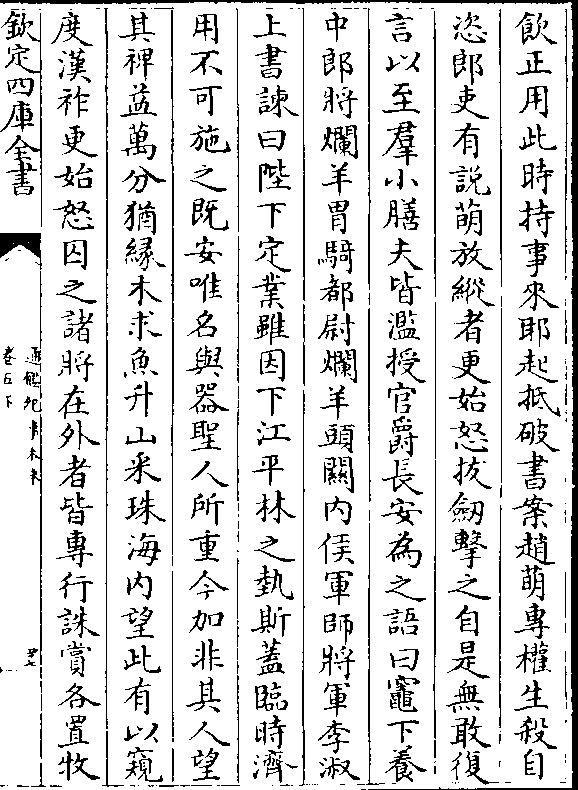 飲正用此時持事來耶起抵破書案趙萌專權生殺自
恣郎吏有說萌放縱者更始怒拔劒擊之自是無敢復
言以至羣小膳夫皆濫授官爵長安為之語曰竈下養
中郎將爛羊胃騎都尉爛羊頭關内侯軍師將軍李淑
上書諫曰陛下定業雖因下江平林之埶斯蓋臨時濟
用不可施之既安唯名與器聖人所重今加非其人望
其裨益萬分猶緣木求魚升山采珠海内望此有以窺
度漢祚更始怒囚之諸將在外者皆專行誅賞各置牧
欽定四庫全書
通鑑紀事本末
卷五下